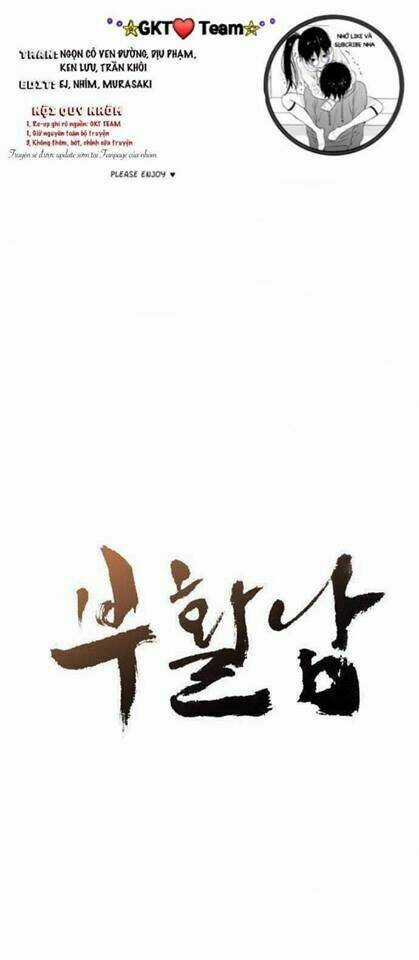 GKT♥ Team
NHỚ LIKE VÀ
SUBCRIBE NHA
TRAN: NGỌN CỎ VEN ĐƯỜNG, DỊU PHẠM,
KEN LƯU, TRẦN KHÔI
EDIT: EJ, NHÍM, MURASAKI
NỘI QUY NHÓM
1, Re-up ghi rõ nguồn: GKT TEAM
2, Giữ nguyên toàn bộ truyện
3, Không thêm, bớt, chỉnh sửa truyện
Truyện sẽ được update sớm tại Fanpage của nhóm
PLEASE ENJOY ♥
부활남